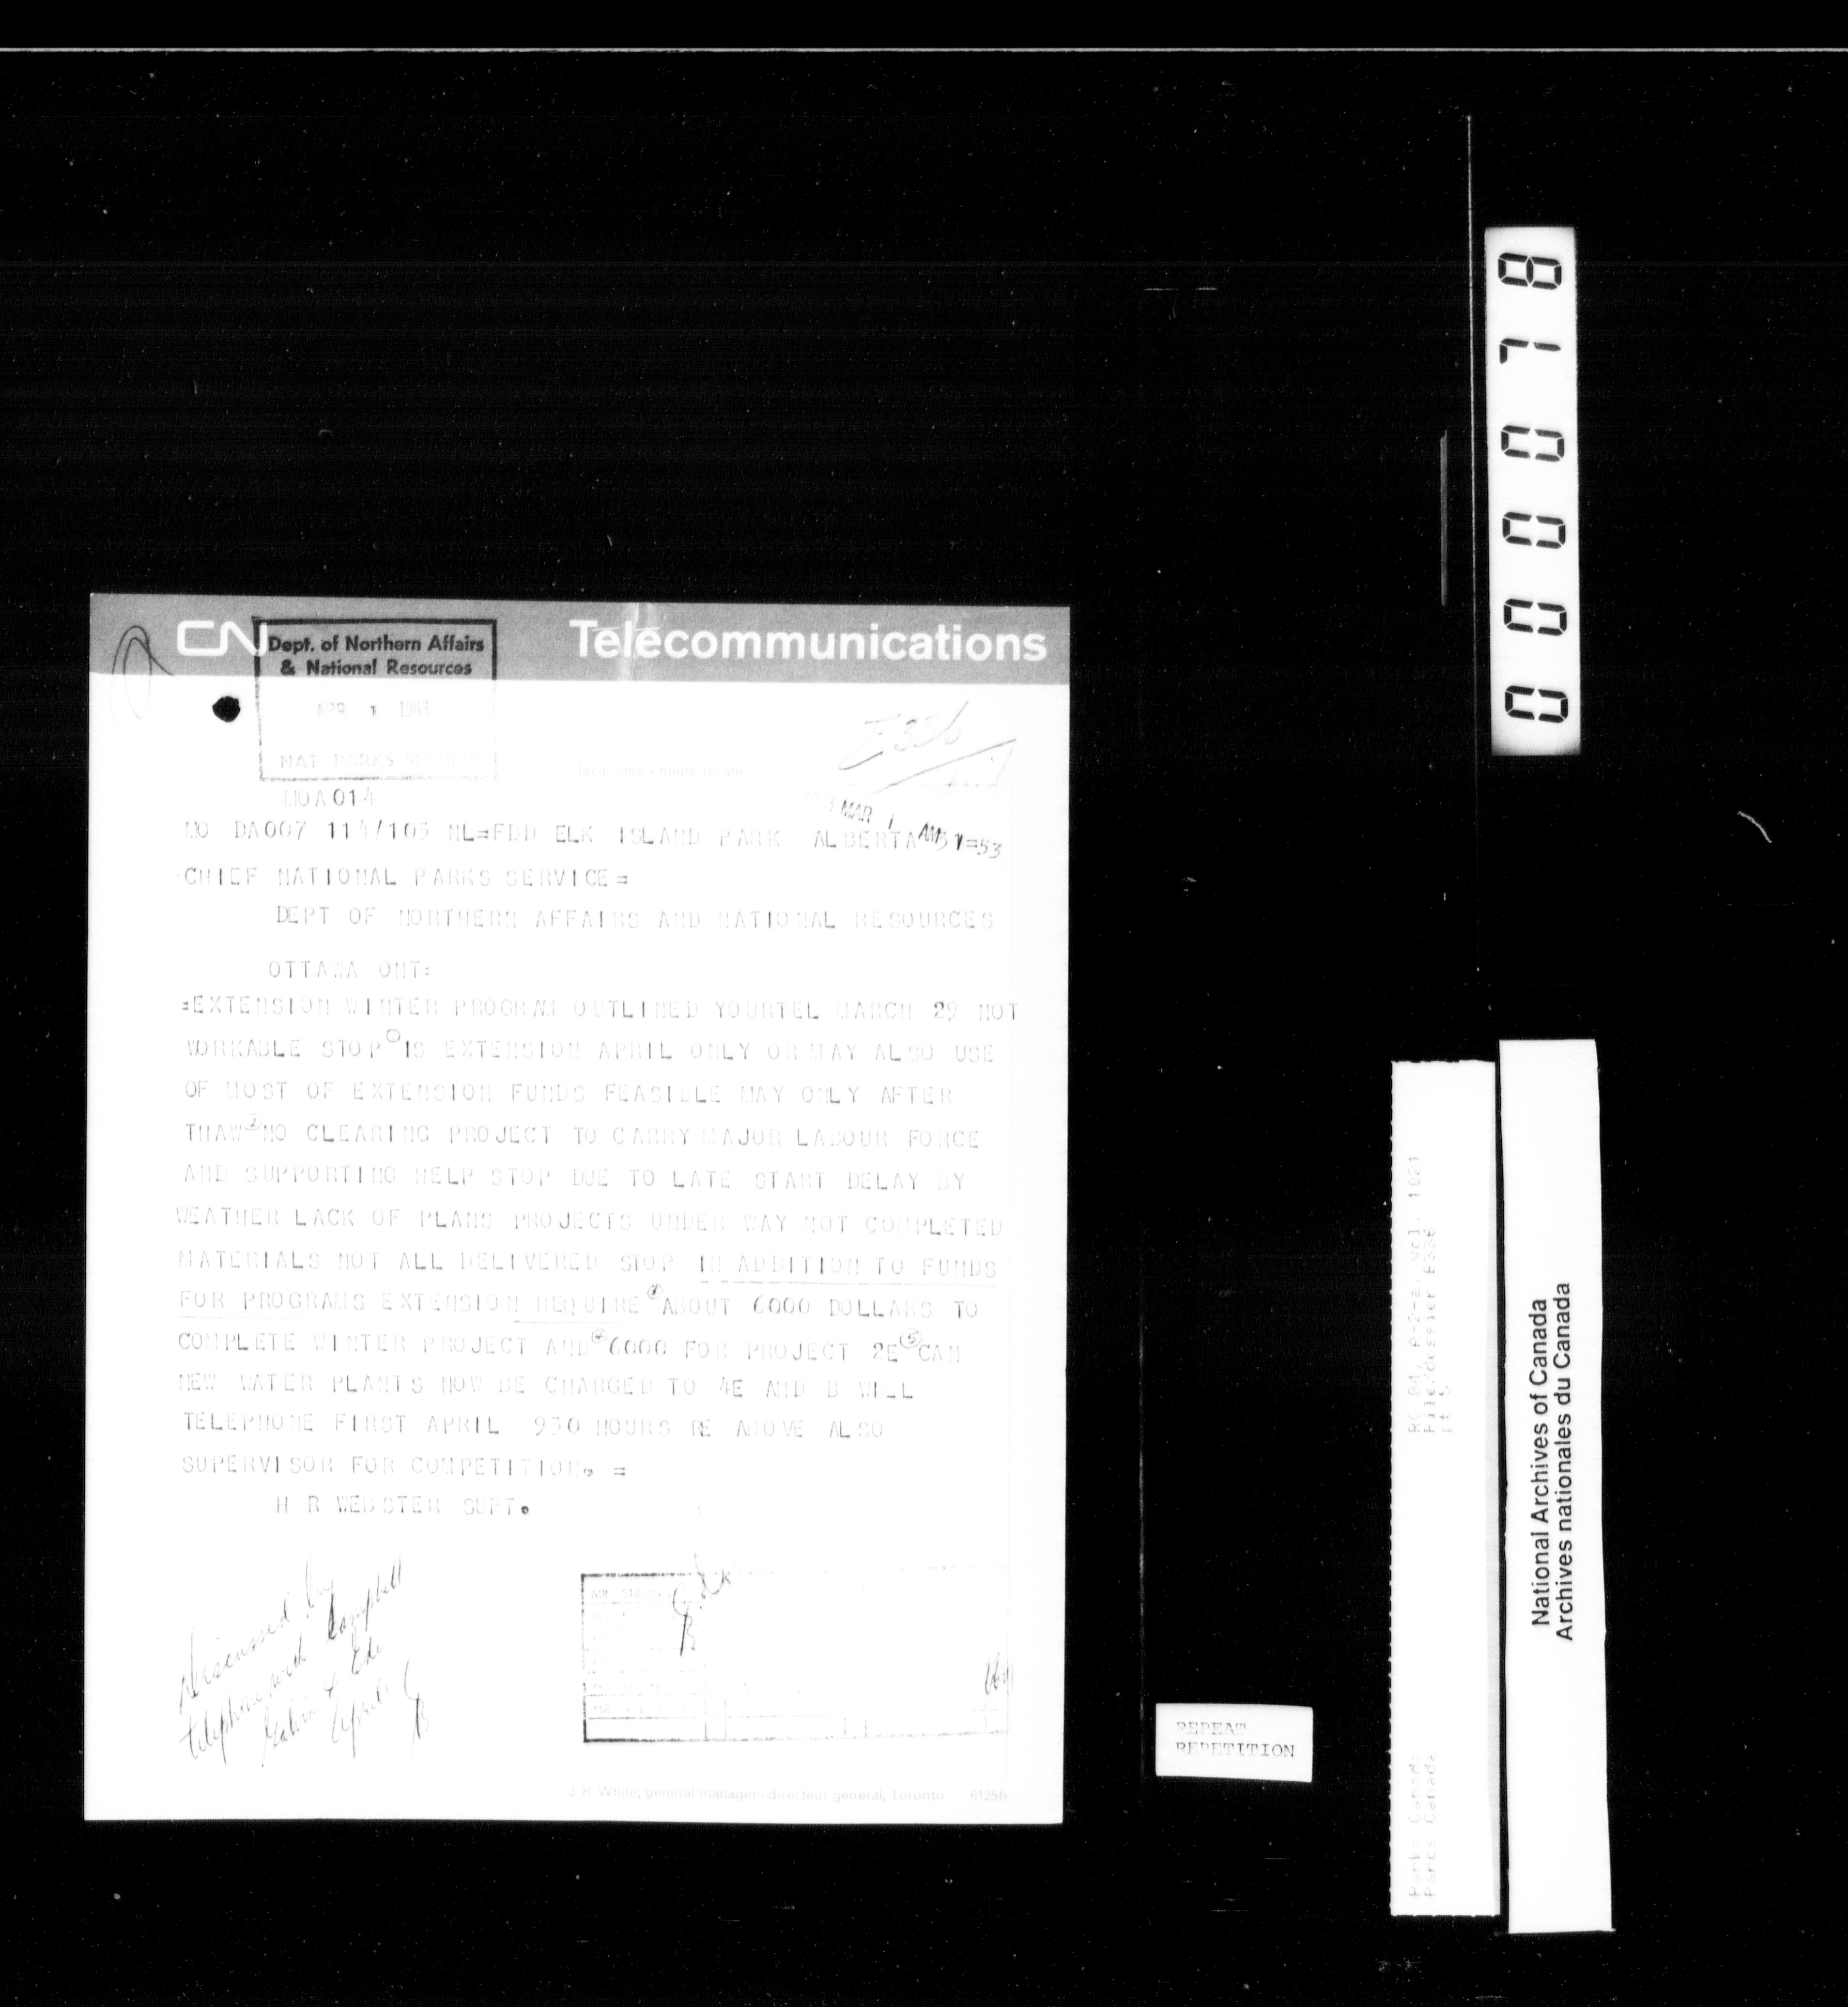 CN Telecommunications
Dept. of Northern Affairs
& National Resources
APR 1 1963
NAT. PARKS SERVICE
local time - heure locale
E336
MOA014
MAR AM
MO DA007 114/103 NL=FDD ELK ISLAND PARK ALBERTA 31=53
CHIEF NATIONAL PARKS SERVICE=
DEPT OF NORTHERN AFFAIRS AND NATIONAL RESOURCES
OTTAWA ONT=
=EXTENSION WINTER PROGRAM OUTLINED YOURTEL MARCH 29 NOT
WORKABLE STOP IS EXTENSION APRIL ONLY OR MAY ALSO USE
OF MOST OF EXTENSION FUNDS FEASIBLE MAY ONLY AFTER
THAW 2 NO CLEARING PROJECT TO CARRY MAJOR LABOUR FORCE
AND SUPPORTING HELP STOP DUE TO LATE START DELAY BY
WEATHER LACK OF PLANS PROJECTS UNDER WAY NOT COMPLETED
MATERIALS NOT ALL DELIVERED STOP IN ADDITION TO FUNDS
FOR PROGRAMS EXTENSION REQUIRE ABOUT 6000 DOLLARS TO
COMPLETE WINTER PROJECT AND 4 6000 FOR PROJECT 2E 5 CAN
NEW WATER PLANTS NOW BE CHARGED TO 4E AND B WILL
TELEPHONE FIRST APRIL 930 HOURS RE ABOVE ALSO
SUPERVISOR FOR COMPETITION. =
H R WEBSTER SUPT.
Discussed by
telephone with Campbell
Galvin & Ede
April 1
B
J. R. White, general manager - directeur general, Toronto 6125b
REPEAT
REPETITION
000078
Parks Canada
Parcs Canada
RG 84, A-2-a, vol. 1021
File/dossier E336
pt 5
National Archives of Canada
Archives nationales du Canada